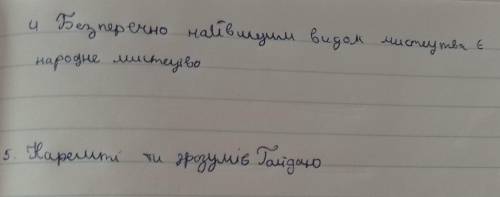 4 Безперечно найвищим видом мистецтва є
народне мистецтво
5. Нарешті ти зрозумів Гайдаю